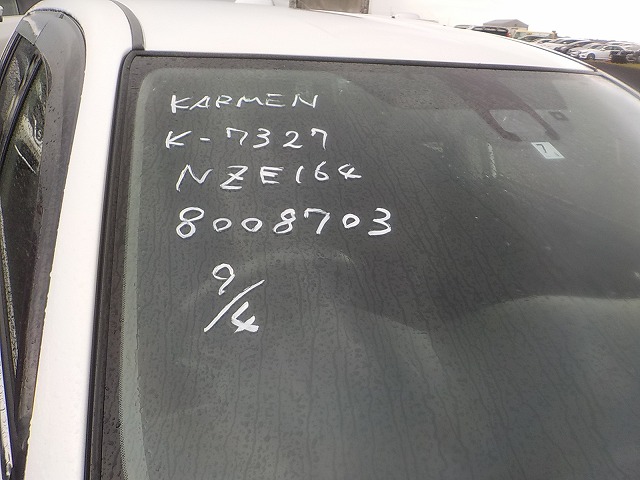 KARMEN
K-7327
NZE164
8008703
9/4
7